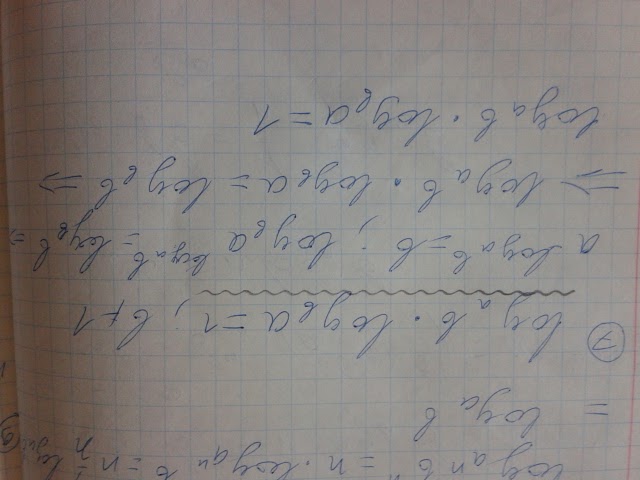 log_{aⁿ} bⁿ = n · log_{aⁿ} b = n · 1/n log
= log_a b
⑦ log_a b · log_b a = 1; b ≠ 1
a^{log_a b} = b; log_b a^{log_a b} = log_b b ⇒
⇒ log_a b · log_b a = log_b b ⇒
log_a b · log_b a = 1